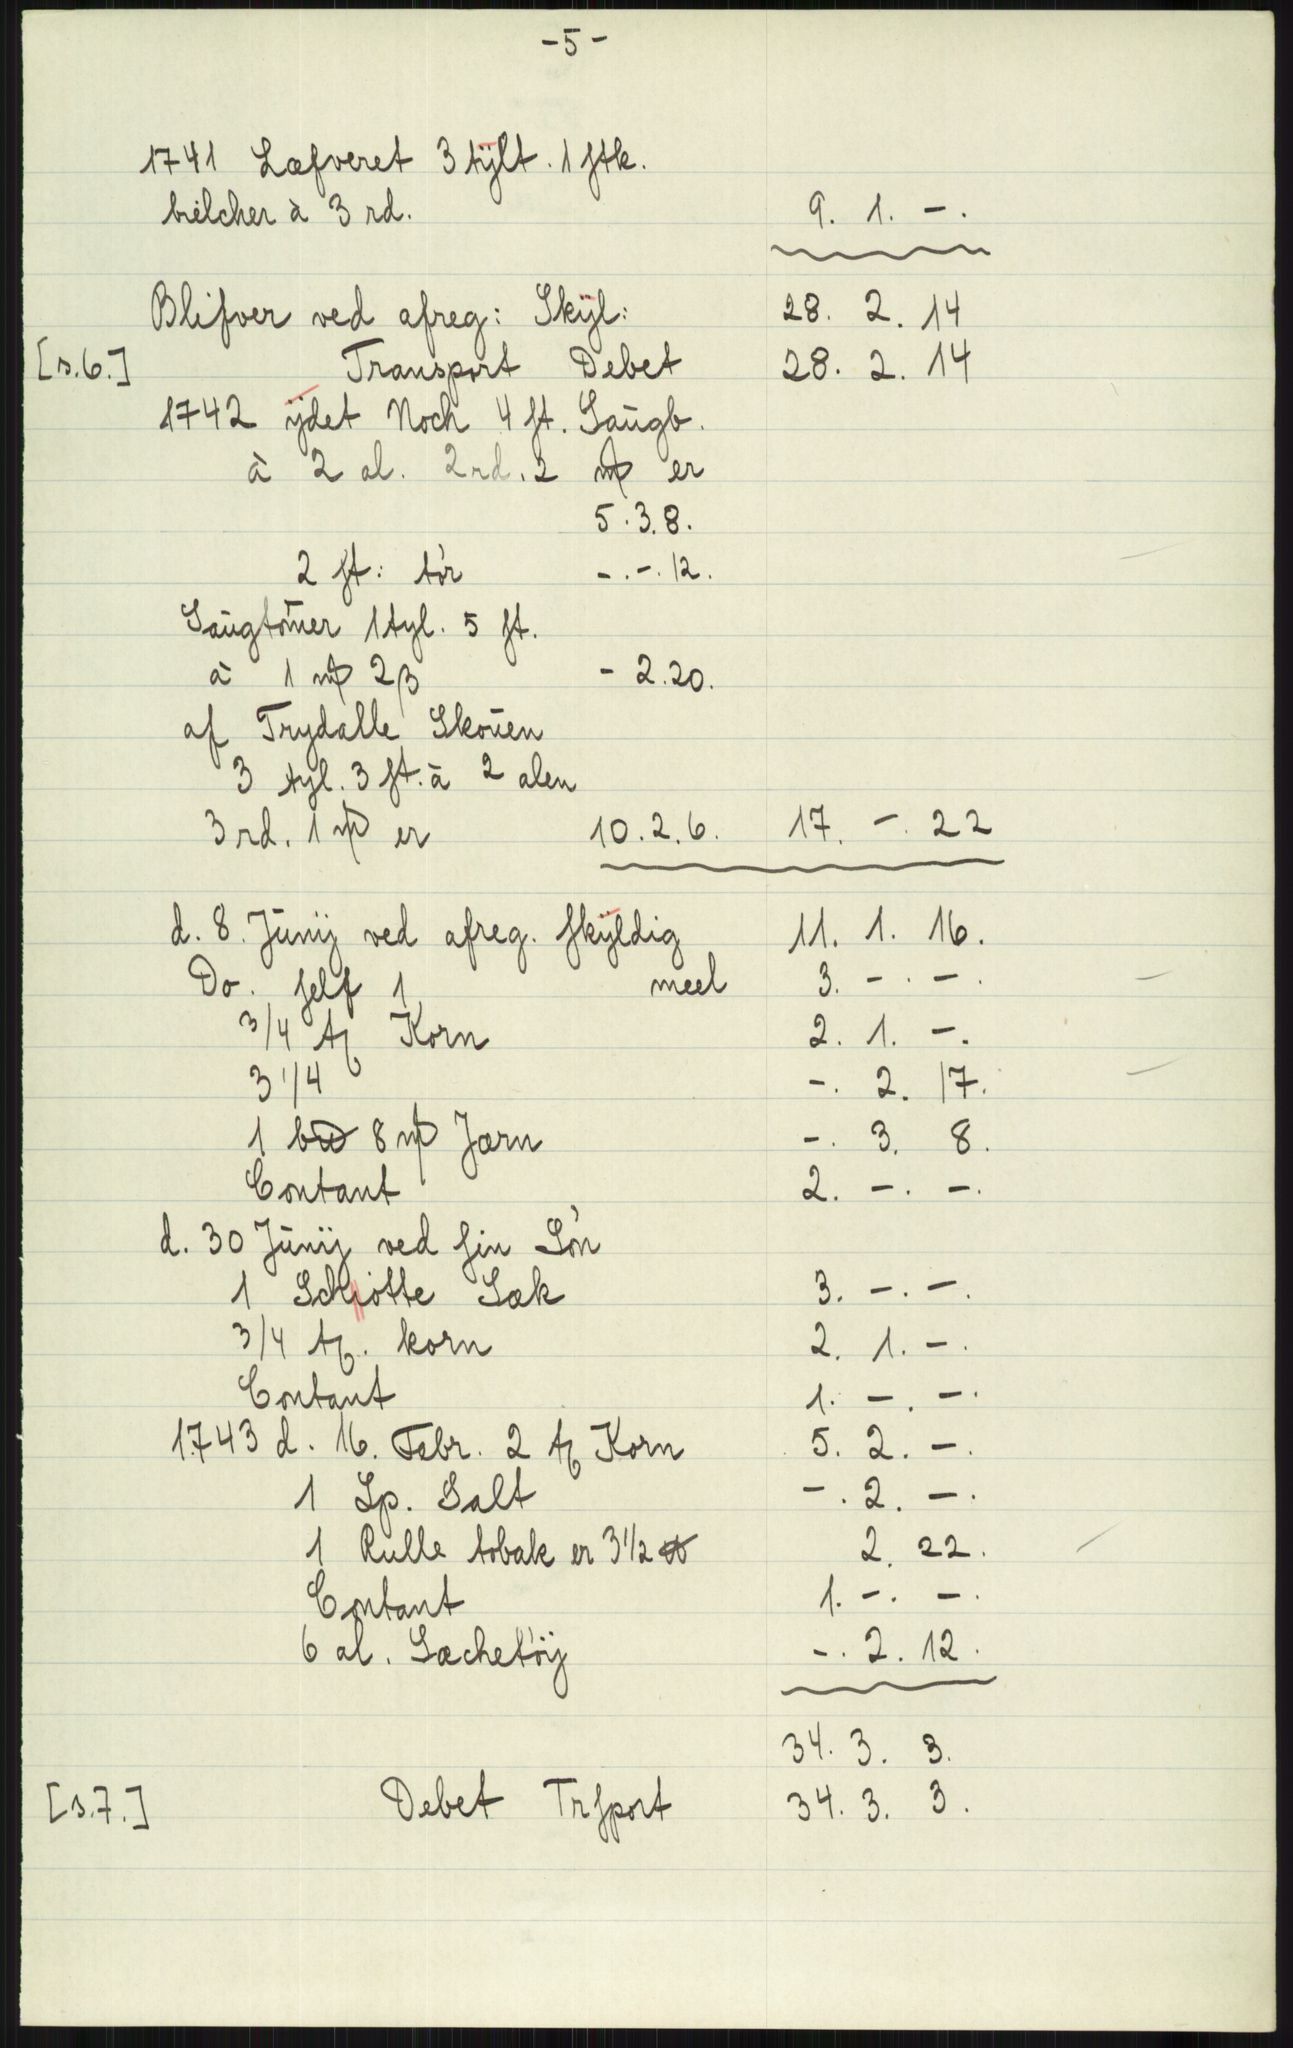 -5-
1741 Læfveret 3 tÿlt. 1 stk.
bielcher à 3 rd. 9. 1. -.
Blifver ved afreg: Skÿl: 28. 2. 14
[s.6.] Transport Debet 28. 2. 14
1742 ÿdet Noch 4 st. Saugb.
à 2 al. 2 rd. 2 mƒ er
5.3.8.
2 st: tór -.-.12.
Saugtömer 1 tyl. 5 st.
à 1 mƒ 2β - 2.20.
af Trydalle Skouen
3 tyl. 3 st. à 2 alen
3 rd. 1 mƒ er 10.2.6. 17. -. 22
d. 8. Junij ved afreg. skÿldig 11. 1. 16.
Do. self 1 meel 3. -. -.
3/4 tƒ Korn 2. 1. -.
3 1/4 -. 2. 17.
1 8 mƒ Jærn -. 3. 8.
Contant 2. -. -.
d. 30 Junij ved sin Són
1 Schiotte Sæk 3. -. -.
3/4 tƒ. korn 2. 1. -.
Contant 1. -. -.
1743 d. 16. Febr. 2 tƒ Korn 5. 2. -.
1 Sp. Salt -. 2. -.
1 Rulle tobak er 3 1/2 ℔ 2. 22.
Contant 1. -. -.
6 al. Sæchetóij -. 2. 12.
34. 3. 3.
[s.7.] Debet Trsport 34. 3. 3.